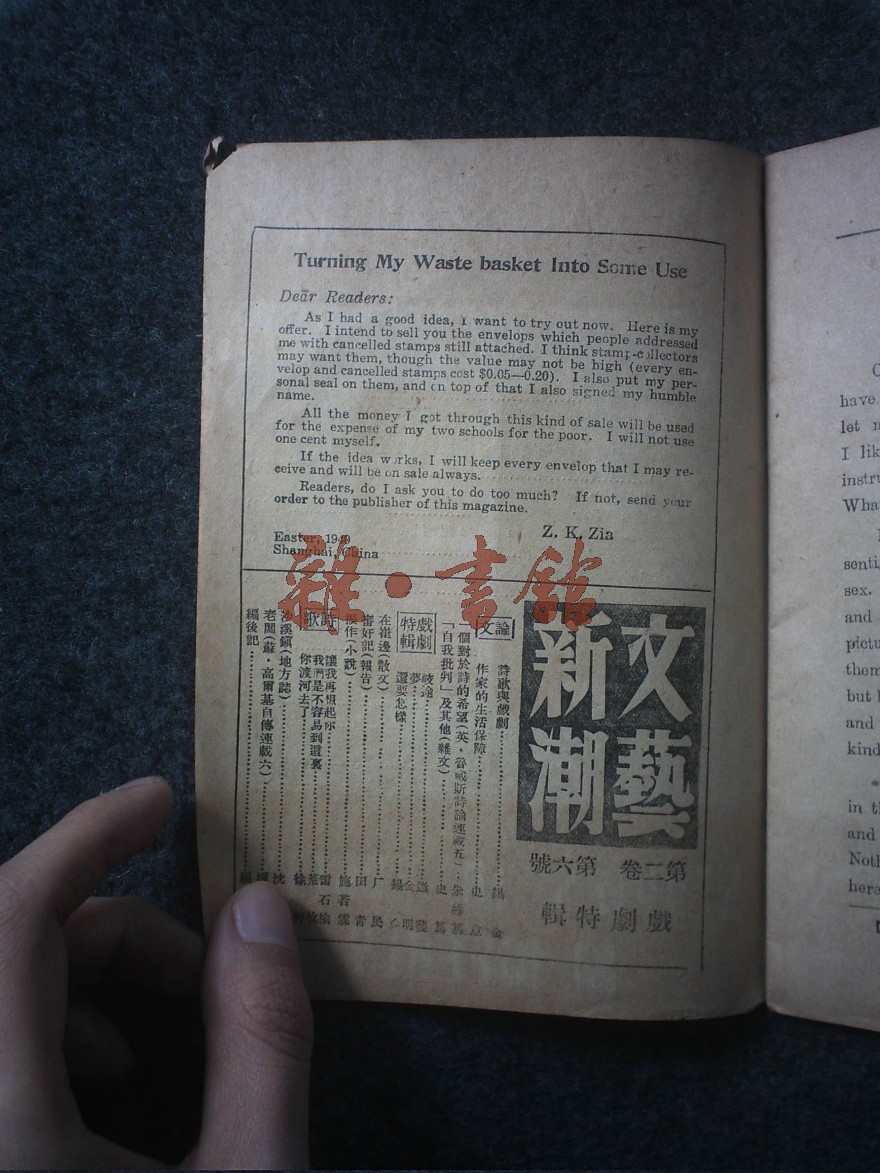 Turning My Waste basket Into Some Use
Dear Readers:
As I had a good idea, I want to try out now. Here is my
offer. I intend to sell you the envelops which people addressed
me with cancelled stamps still attached. I think stamp-collectors
may want them, though the value may not be high (every en-
velop and cancelled stamps cost $0.05—0.20). I also put my per-
sonal seal on them, and on top of that I also signed my humble
name.
All the money I got through this kind of sale will be used
for the expense of my two schools for the poor. I will not use
one cent myself.
If the idea works, I will keep every envelop that I may re-
ceive and will be on sale always.
Readers, do I ask you to do too much? If not, send your
order to the publisher of this magazine.
Z. K. Zia
Easter, 1940
Shanghai, China
雜·書館
文藝
新潮
第二卷 第六號
戲劇特輯
論文
詩歌與戲劇
作家的生活保障
一個對於詩的希望(英·
詩論連載五)
「自我批判」及其他(雜文)
戲劇特輯
歧途
夢
還要怎樣
在
邊(散文)
奸記(報告)
作(小說)
詩歌
讓我再
起你
我們是不容易到這裏
你渡河去了
沙溪鎮(地方誌)
老闆(蘇·高爾基自傳連載六)
編後記
have
let
I lik
instru
Wha
senti
sex.
and
pictu
them
but
and
kind
in t
and
Noth
hers